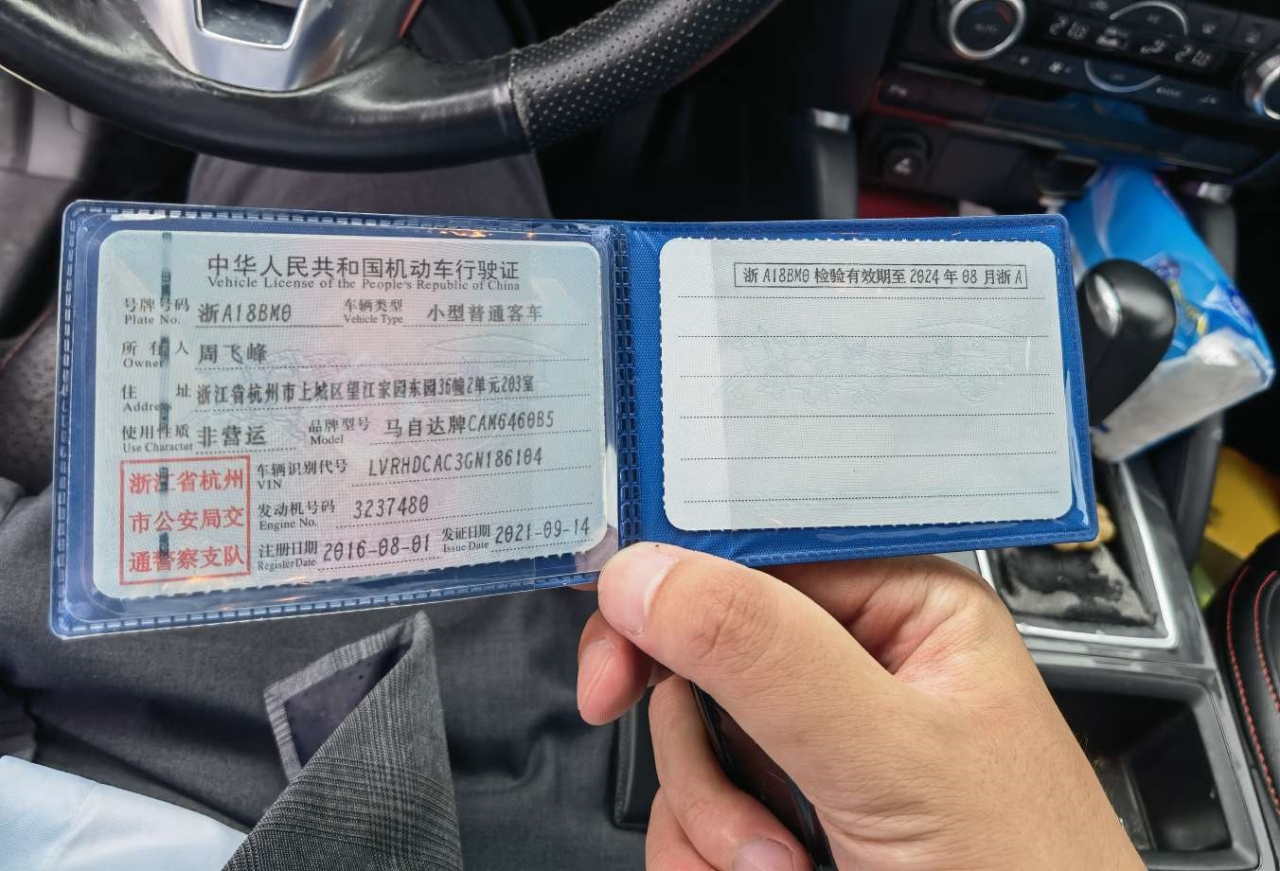 中华人民共和国机动车行驶证
Vehicle License of the People's Republic of China
号牌号码 浙A18BM0 车辆类型 小型普通客车
Plate No. Vehicle Type
所有人 周飞峰
Owner
住址 浙江省杭州市上城区望江家园东园36幢2单元203室
Address
使用性质 非营运 品牌型号 马自达牌CAM6460B5
Use Character Model
浙江省杭州
市公安局交
通警察支队
车辆识别代号 LVRHDCAC3GN186104
VIN
发动机号码 3237480
Engine No.
注册日期 2016-08-01 发证日期 2021-09-14
Register Date Issue Date
浙A18BM0 检验有效期至 2024年08月浙A
AUTO
21.0 21.0